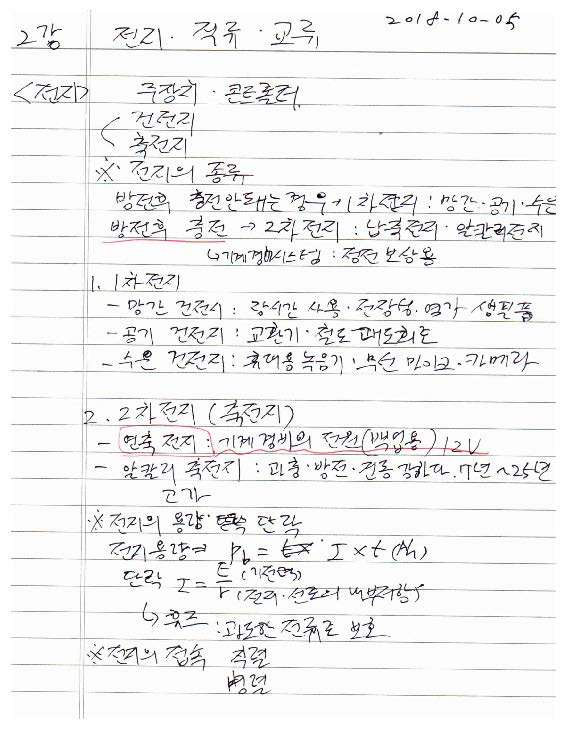 2018-10-05
2강 전지·직류·교류
<전지> 주장치·콘트롤터
건전지
축전지
※ 전지의 종류
방전후 충전안돼는 경우 → 1차전지 : 망간·공기·수은
방전후 충전 → 2차전지 : 납축전지·알칼리전지
↳ 기계경비시스템 : 정전보상용
1. 1차전지
- 망간 건전지 : 장시간 사용·저장성·염가 생필품
- 공기 건전지 : 교환기·철도 궤도회로
- 수은 건전지 : 휴대용녹음기·무선 마이크·카메라
2. 2차전지 (축전지)
- 연축전지 : 기계경비의 전원(백업용) 12V
- 알칼리 축전지 : 과충·방전·진동 강하다. 7년~25년
고가
※ 전지의 용량· 단락
전지용량⇒ Pb = I×t (Ah)
단락 I = E/r (기전력) (전지·선로의 내부저항)
↳ 휴즈 : 과도한 전류로 보호
※ 전지의 접속 직렬
병렬